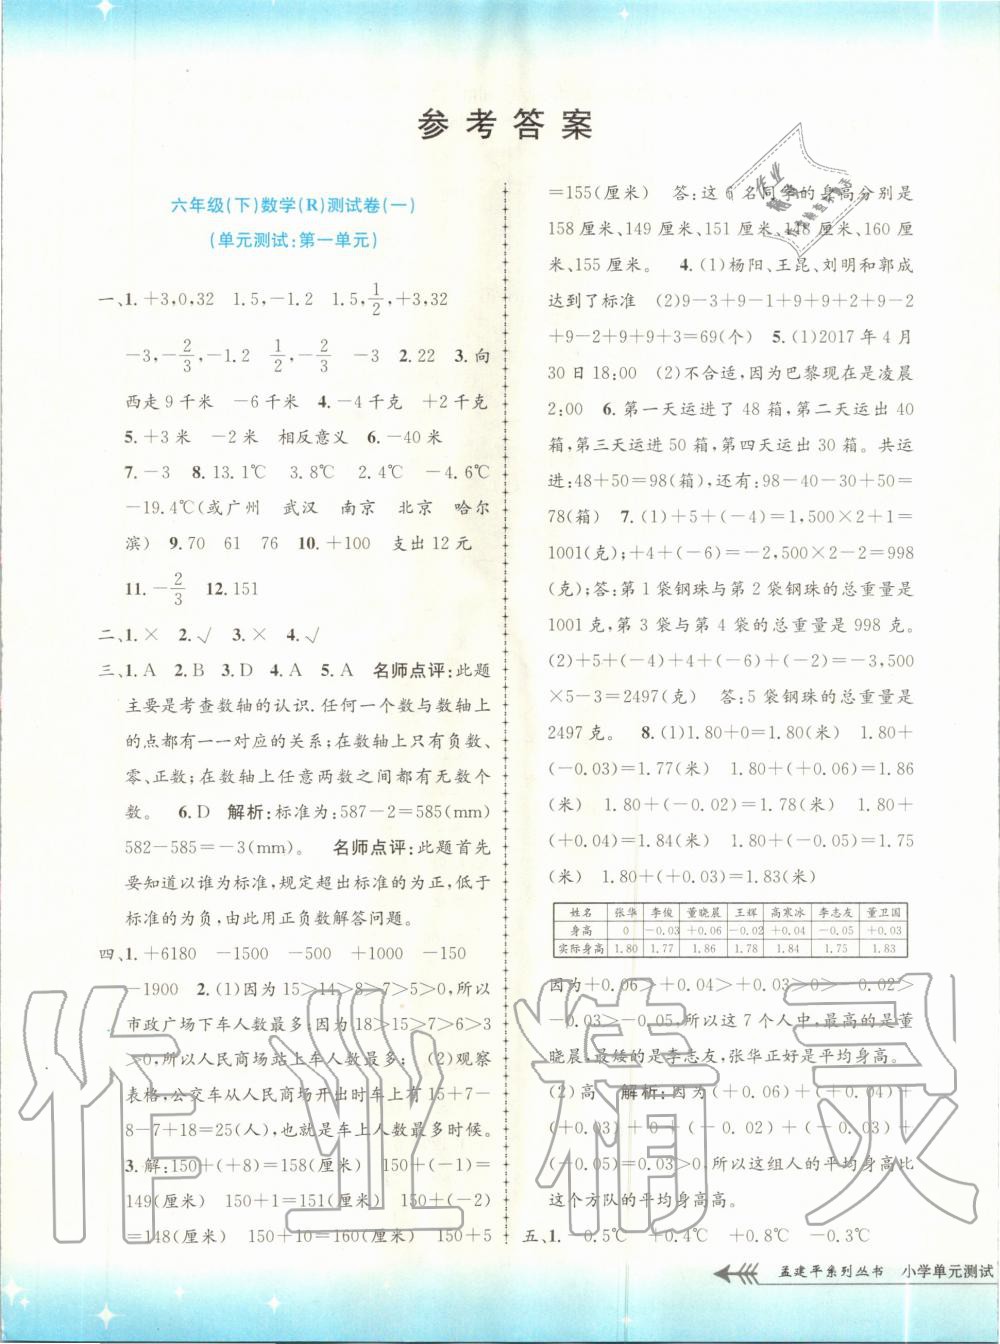 参考答案
六年级(下)数学(R)测试卷(一)
(单元测试:第一单元)
一、1.+3,0,32 1.5,-1.2 1.5,1/2,+3,32
-3,-2/3,-1.2 1/2,-2/3 -3 2.22 3.向
西走9千米 -6千米 4.-4千克 +2千克
5.+3米 -2米 相反意义 6.-40米
7.-3 8.13.1℃ 3.8℃ 2.4℃ -4.6℃
-19.4℃(或广州 武汉 南京 北京 哈尔
滨) 9.70 61 76 10.+100 支出12元
11.-2/3 12.151
二、1.× 2.√ 3.× 4.√
三、1.A 2.B 3.D 4.A 5.A 名师点评:此题
主要是考查数轴的认识.任何一个数与数轴上
的点都有一一对应的关系;在数轴上只有负数、
零、正数;在数轴上任意两数之间都有无数个
数。 6.D 解析:标准为:587-2=585(mm)
582-585=-3(mm)。 名师点评:此题首先
要知道以谁为标准,规定超出标准的为正,低于
标准的为负,由此用正负数解答问题。
四、1.+6180 -1500 -500 +1000 -150
-1900 2.(1)因为15>14>8>7>5>0,所以
市政广场下车人数最多;因为18>15>7>6>3
>0,所以人民商场站上车人数最多; (2)观察
表格,公交车从人民商场开出时车上有15+7-
8-7+18=25(人),也就是车上人数最多时候。
3.解:150+(+8)=158(厘米) 150+(-1)=
149(厘米) 150+1=151(厘米) 150+(-2)
=148(厘米) 150+10=160(厘米) 150+5
=155(厘米) 答:这6名同学的身高分别是
158厘米、149厘米、151厘米、148厘米、160厘
米、155厘米。 4.(1)杨阳、王昆、刘明和郭成
达到了标准 (2)9-3+9-1+9+9+2+9-2
+9-2+9+9+3=69(个) 5.(1)2017年4月
30日18:00 (2)不合适,因为巴黎现在是凌晨
2:00 6.第一天运进了48箱,第二天运出40
箱,第三天运进50箱,第四天运出30箱。共运
进:48+50=98(箱),还有:98-40-30+50=
78(箱) 7.(1)+5+(-4)=1,500×2+1=
1001(克);+4+(-6)=-2,500×2-2=998
(克);答:第1袋钢珠与第2袋钢珠的总重量是
1001克,第3袋与第4袋的总重量是998克。
(2)+5+(-4)+4+(-6)+(-2)=-3,500
×5-3=2497(克) 答:5袋钢珠的总重量是
2497克。 8.(1)1.80+0=1.80(米) 1.80+
(-0.03)=1.77(米) 1.80+(+0.06)=1.86
(米) 1.80+(-0.02)=1.78(米) 1.80+
(+0.04)=1.84(米) 1.80+(-0.05)=1.75
(米) 1.80+(+0.03)=1.83(米)
姓名 张华 李俊 董晓晨 王辉 高寒冰 李志友 董卫国
身高 0 -0.03 +0.06 -0.02 +0.04 -0.05 +0.03
实际身高 1.80 1.77 1.86 1.78 1.84 1.75 1.83
因为+0.06>+0.04>+0.03>0>-0.02>
-0.03>-0.05,所以这7个人中,最高的是董
晓晨、最矮的是李志友,张华正好是平均身高。
(2)高 解析:因为(+0.06)+(+0.04)+
(+0.03)+0+(-0.02)+(-0.03)+
(-0.05)=0.03>0,所以这组人的平均身高比
这个方队的平均身高高。
五、1. 0.5℃ +0.4℃ +0.8℃ -0.3℃
孟建平系列丛书 小学单元测试
作业精灵